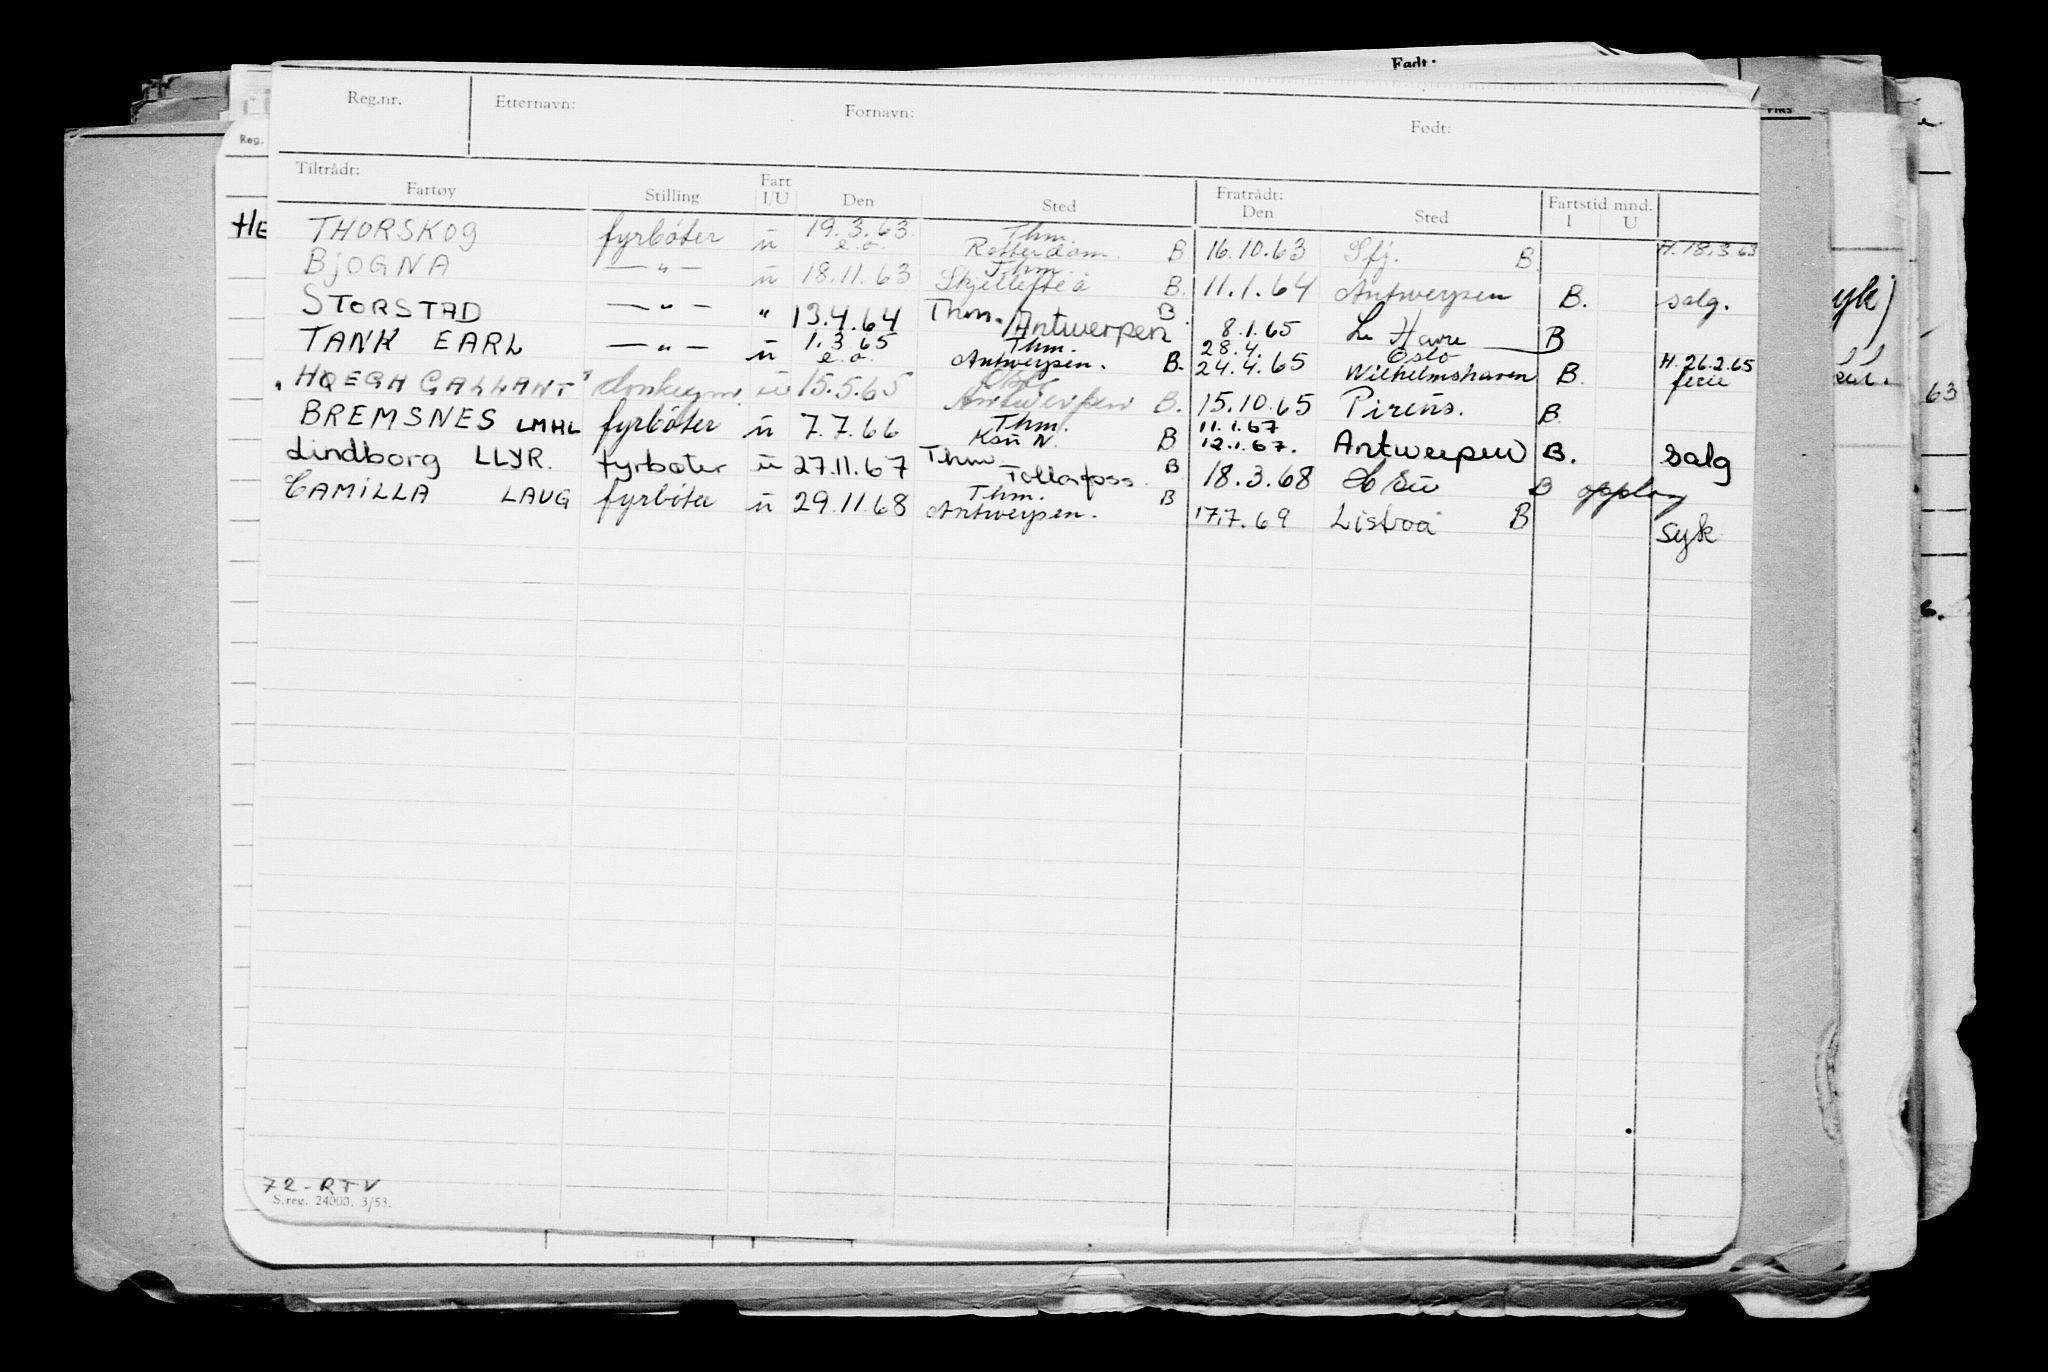 Født:
Reg.nr. Etternavn: Fornavn: Født:
Reg.
Tiltrådt: Fratrådt:
Fartøy Stilling Fart I/U Den Sted Den Sted Fartstid mnd. I U
HE THORSKOG fyrbøter u 19.3.63. e.o. Thm. Rotterdam. B 16.10.63 Sfj. B. H. 18.3.63
BJOGNA — " — u 18.11.63 Thm. Skjellefteå B. 11.1.64 Antwerpen B. salg.
STORSTAD — " — " 13.4.64 Thm./Antwerpen B. 8.1.65 Le Havre B
TANK EARL — " — u 1.3.65 e.o. Thm. Antwerpen. B. 28.4. 24.4.65 Oslo Wilhelmshaven B. H. 26.2.65 ferie
"HØEGH GALLANT" donkeym. u 15.5.65 Oslo Antwerpen B. 15.10.65 Pireus. B.
BREMSNES LMHL fyrbøter u 7.7.66 Thm. Ksu N. B 11.1.67 12.1.67. Antwerpen B. salg
Lindborg LLYR. fyrbøter u 27.11.67 Thm. Follafoss B 18.3.68 B opplag
CAMILLA LAUG fyrbøter u 29.11.68 Thm. Antwerpen. B 17.7.69 Lisboa B syk
yk)
63
72-RTV
S.reg. 24000. 3/53.